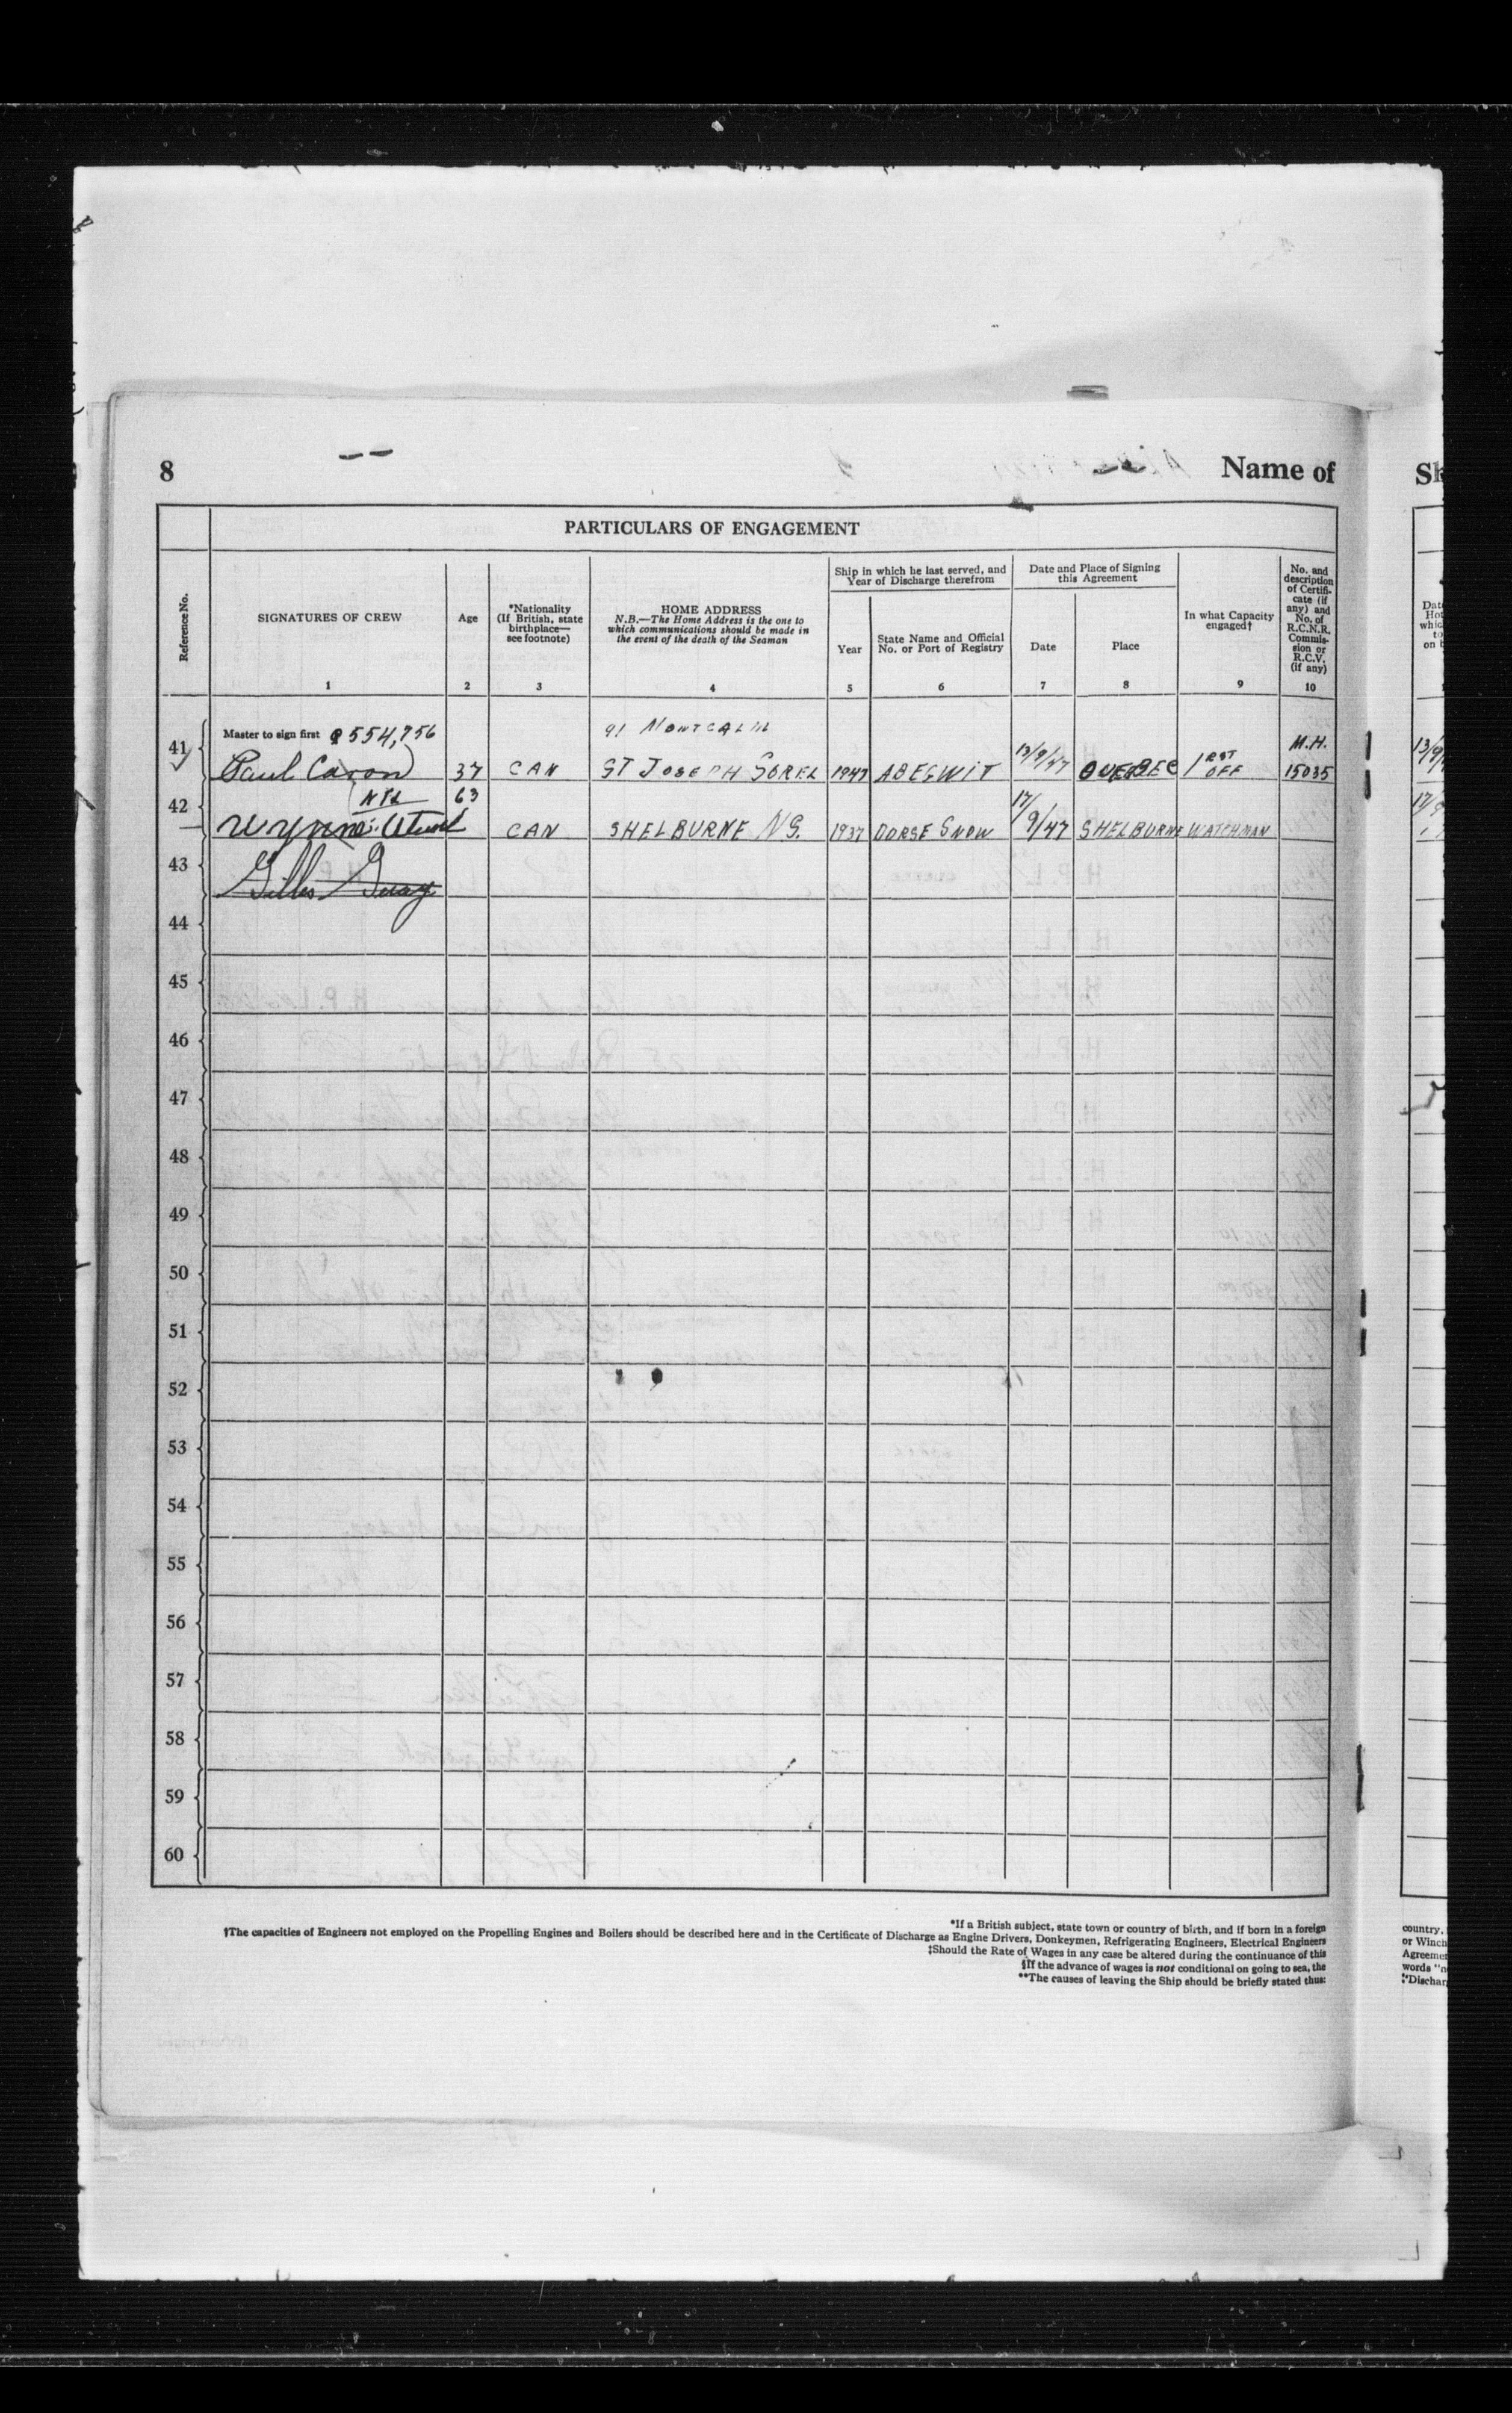 8
Name of
Sh
PARTICULARS OF ENGAGEMENT
Reference No.
SIGNATURES OF CREW
1
Age
2
*Nationality
(If British, state
birthplace—
see footnote)
3
HOME ADDRESS
N.B.—The Home Address is the one to
which communications should be made in
the event of the death of the Seaman
4
Ship in which he last served, and
Year of Discharge therefrom
Year
5
State Name and Official
No. or Port of Registry
6
Date and Place of Signing
this Agreement
Date
7
Place
8
In what Capacity
engaged†
9
No. and
description
of Certifi-
cate (if
any) and
No. of
R.C.N.R.
Commis-
sion or
R.C.V.
(if any)
10
Master to sign first 554,756
91 MONTCALM
M.H.
41 Paul Caron 37 CAN ST JOSEPH SOREL 1947 ABEGWIT 13/9/47 QUEBEC 1RST OFF 15035
NIL 63
42 Wynne CAN SHELBURNE NS. 1937 DORSE SNOW 17/9/47 SHELBURNE WATCHMAN
43 Gilles Guay
44
45
46
47
48
49
50
51
52
53
54
55
56
57
58
59
60
*If a British subject, state town or country of birth, and if born in a foreign
†The capacities of Engineers not employed on the Propelling Engines and Boilers should be described here and in the Certificate of Discharge as Engine Drivers, Donkeymen, Refrigerating Engineers, Electrical Engineers
‡Should the Rate of Wages in any case be altered during the continuance of this
§If the advance of wages is not conditional on going to sea, the
**The causes of leaving the Ship should be briefly stated thus:
country,
or Winch
Agreemen
words "n
"Dischar